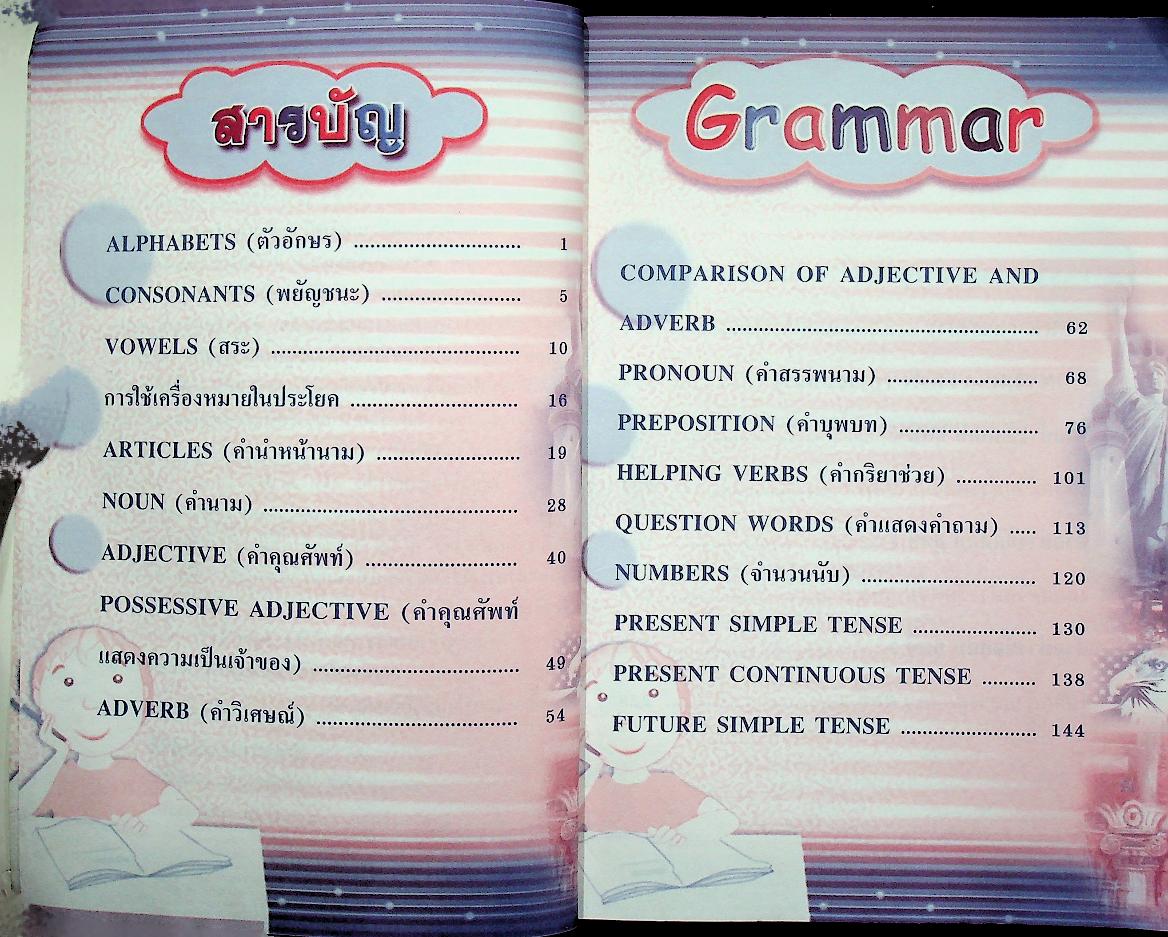 สารบัญ
ALPHABETS (ตัวอักษร) ................................ 1
CONSONANTS (พยัญชนะ) ........................... 5
VOWELS (สระ) ................................................ 10
การใช้เครื่องหมายในประโยค ................................ 16
ARTICLES (คำนำหน้านาม) ........................... 19
NOUN (คำนาม) ................................................. 28
ADJECTIVE (คำคุณศัพท์) ............................. 40
POSSESSIVE ADJECTIVE (คำคุณศัพท์
แสดงความเป็นเจ้าของ) ........................................ 49
ADVERB (คำวิเศษณ์) ....................................... 54
Grammar
COMPARISON OF ADJECTIVE AND
ADVERB ............................................................ 62
PRONOUN (คำสรรพนาม) ............................. 68
PREPOSITION (คำบุพบท) ........................... 76
HELPING VERBS (คำกริยาช่วย) ............... 101
QUESTION WORDS (คำแสดงคำถาม) ..... 113
NUMBERS (จำนวนนับ) .................................. 120
PRESENT SIMPLE TENSE ........................ 130
PRESENT CONTINUOUS TENSE .......... 138
FUTURE SIMPLE TENSE .......................... 144